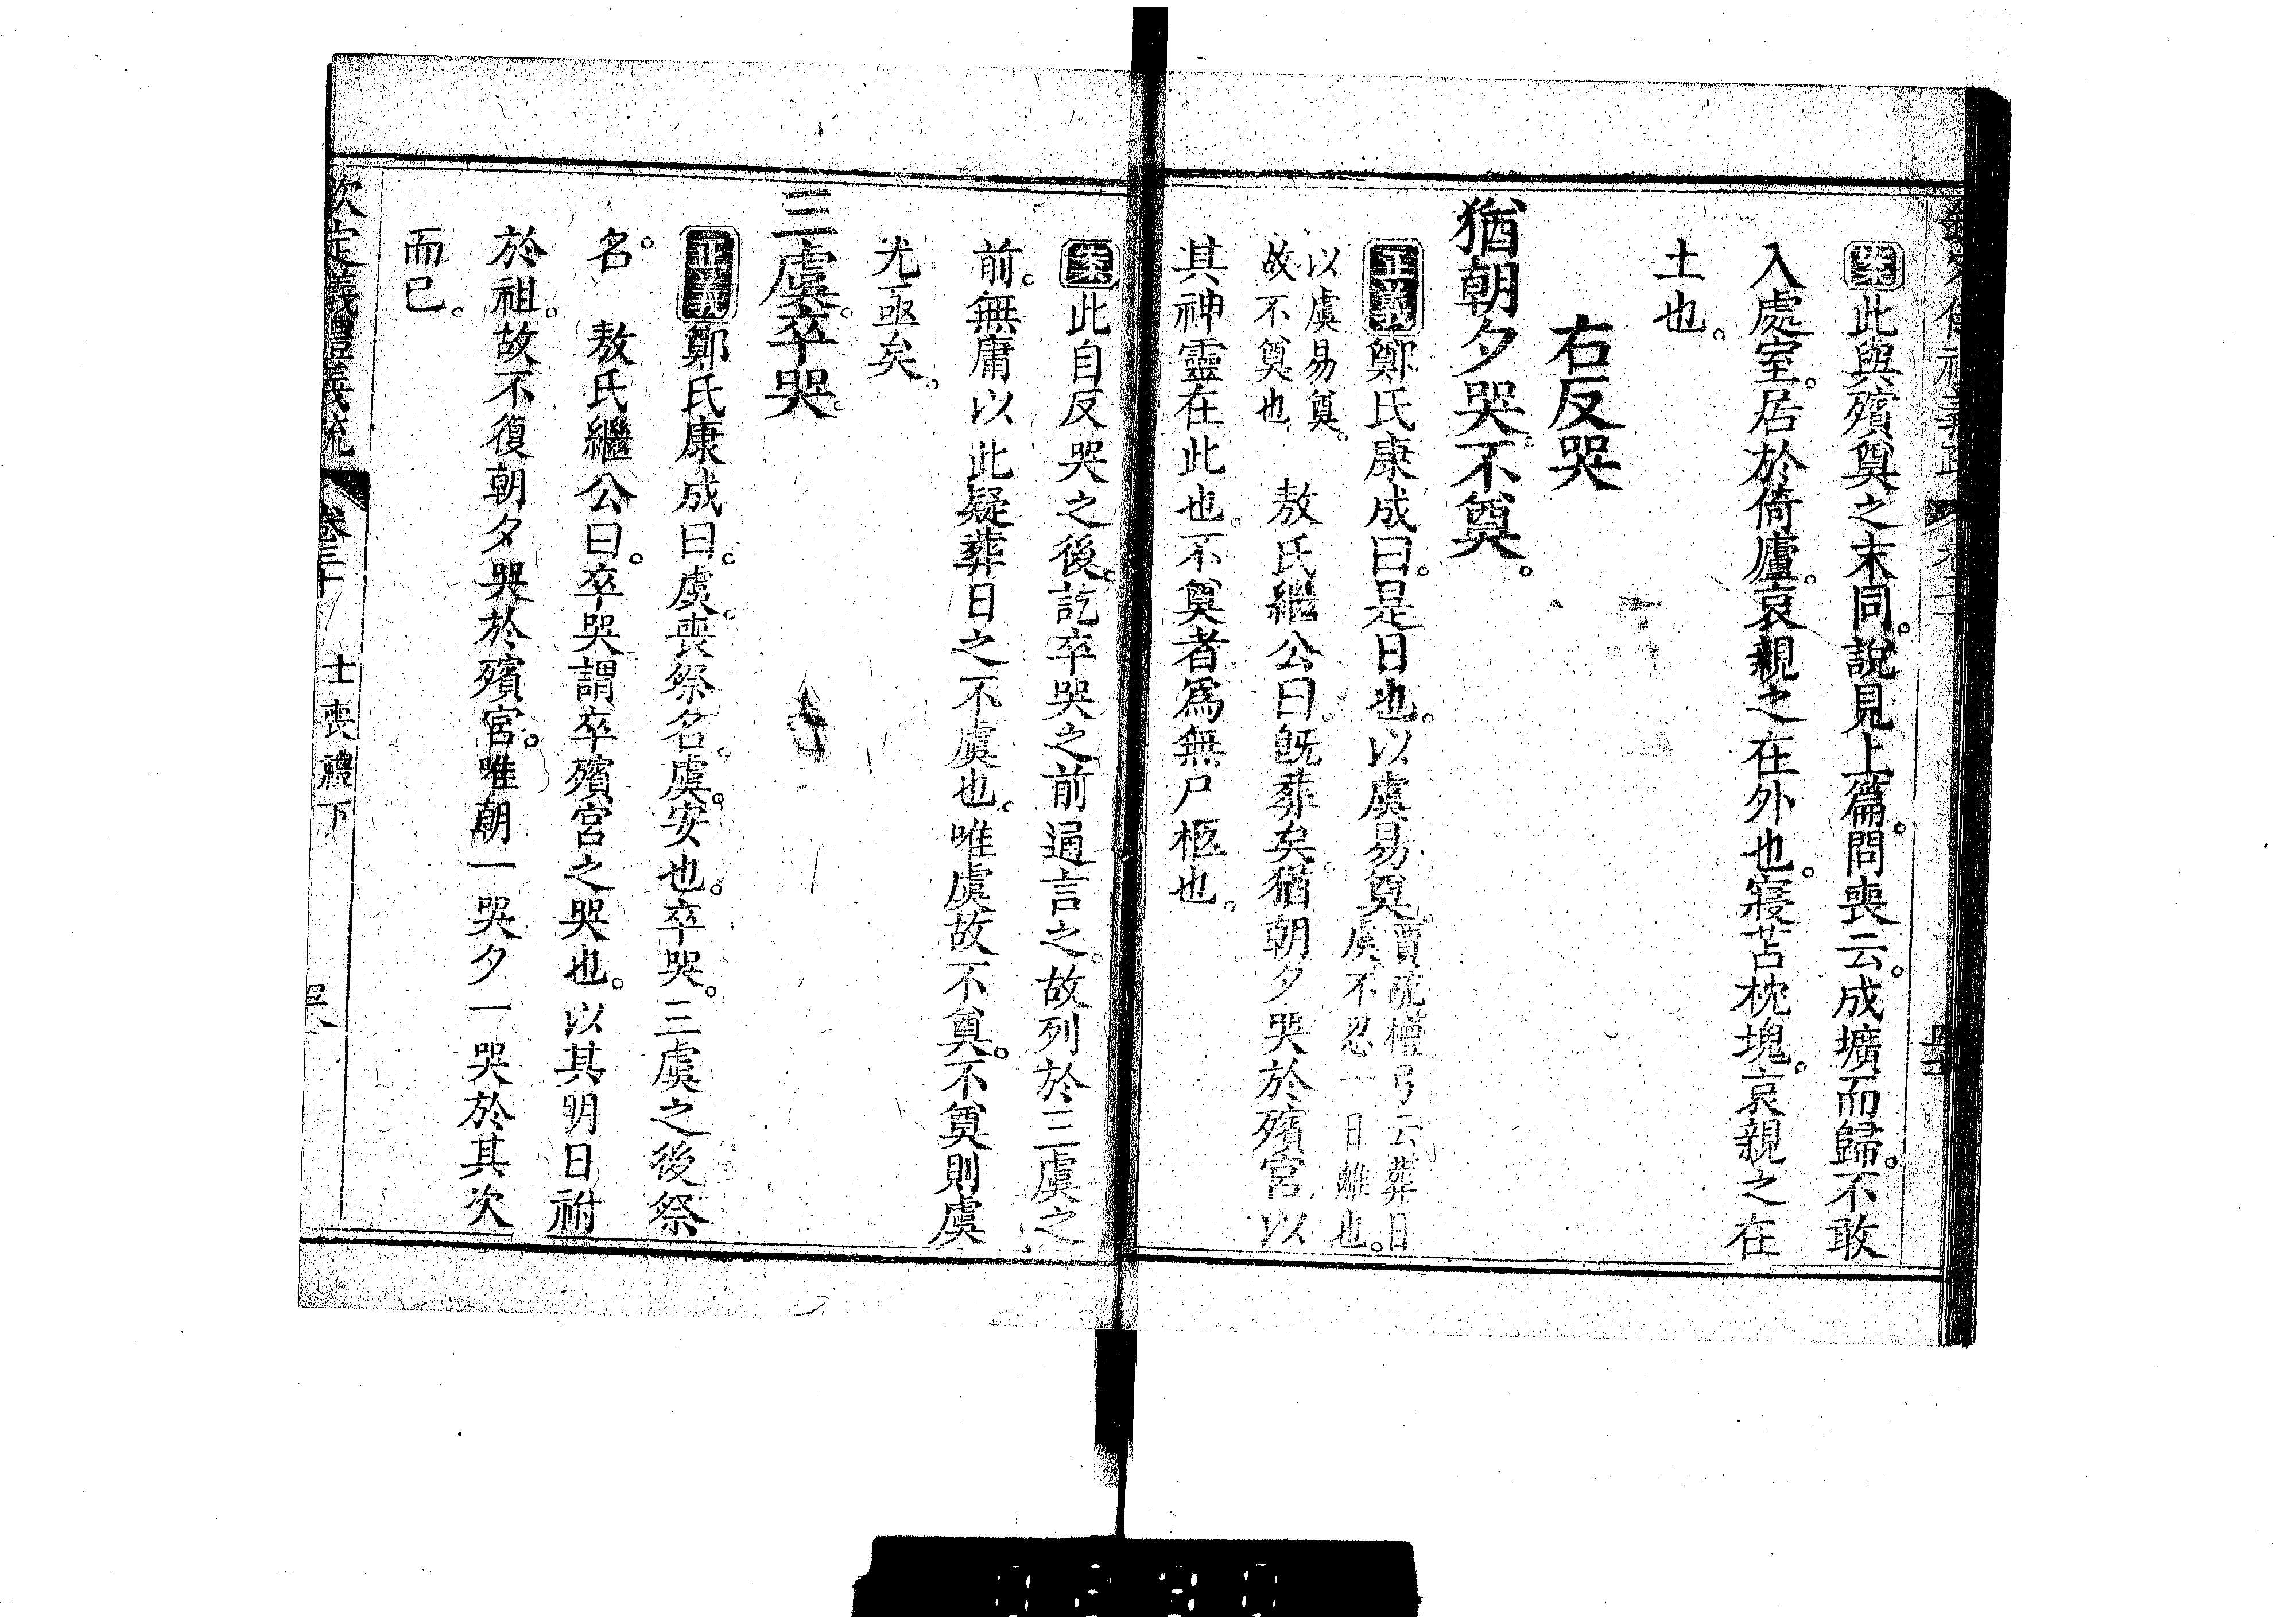 案此與殯奠之末同。說見上篇。問喪云。成壙而歸。不敢
入處室。居於倚廬。哀親之在外也。寢苫枕塊。哀親之在
土也。
右反哭
猶朝夕哭。不奠。
正義鄭氏康成曰。是日也。以虞易奠。賈疏檀弓云葬日
虞不忍一日離也。
以虞易奠。
故不奠也 敖氏繼公曰。既葬矣。猶朝夕哭於殯宮。以
其神靈在此也。不奠者為無尸柩也。
案此自反哭之後。訖卒哭之前通言之。故列於三虞之
前。無庸以此疑葬日之不虞也。唯虞故不奠。不奠則虞
尤亟矣。
三虞。卒哭。
正義鄭氏康成曰。虞。喪祭名。虞。安也。卒哭。三虞之後祭
名。 敖氏繼公曰。卒哭謂卒殯宮之哭也。以其明日祔
於祖。故不復朝夕哭於殯宮。唯朝一哭夕一哭於其次
而已。
欽定儀禮義疏 卷三十 士喪禮下